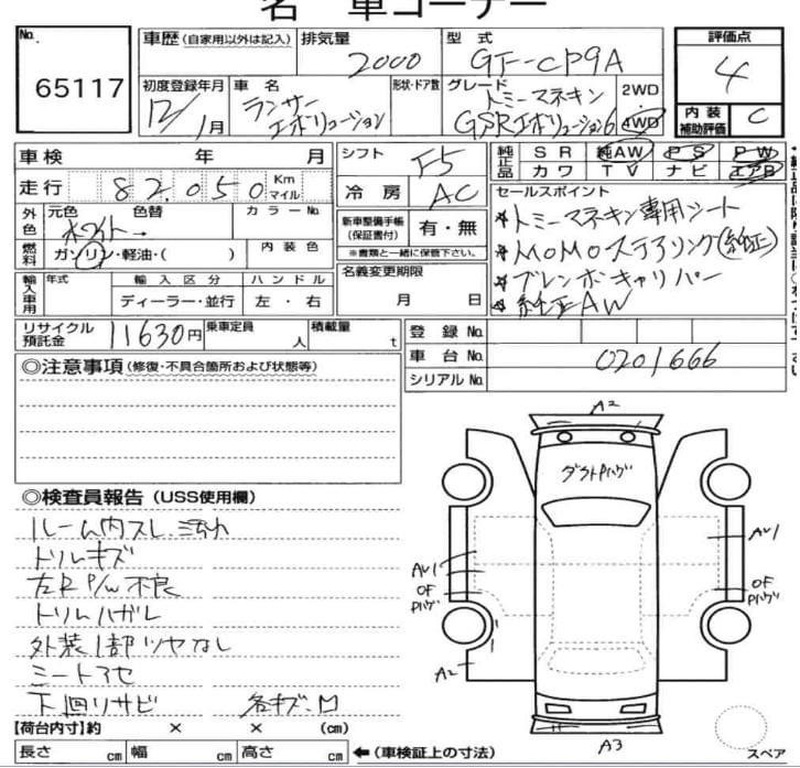 名車コーナー
No. 65117
車歴 (自家用以外は記入) 排気量 2000 型式 GF-CP9A
評価点 4
初度登録年月 12/1月
車名 ランサーエボリューション
形状・ドア数
グレード トミーマネキン GSRエボリューション6
2WD 4WD
内装補助評価 C
車検 年 月
シフト F5
純正品 SR 純AW PS PW
カワ TV ナビ エアB
走行 82,050 Km マイル
冷房 AC
外色 元色 ホワイト→ 色替 カラーNo.
新車整備手帳(保証書付) 有・無
※書類と一緒に保管下さい。
燃料 ガソリン・軽油・( ) 内装色
セールスポイント
★トミーマネキン専用シート
★MOMOステアリング(純正)
★ブレンボキャリパー
★純正AW
輸入車用 年式 輸入区分 ハンドル
ディーラー・並行 左・右
名義変更期限 月 日
リサイクル預託金 11630円 乗車定員 人 積載量 t
登録No.
車台No. 0201666
シリアルNo.
◎注意事項 (修復・不具合箇所および状態等)
◎検査員報告 (USS使用欄)
ルーム内スレ.ヨゴレ
トリムキズ
左R P/W不良
トリムハガレ
外装1部ツヤなし
シートコセ
下回リサビ 各キズ・凹
A2
ダクトPハゲ
AU1
AU1
OF Pハゲ
OF Pハゲ
A2
A3
スペア
【荷台内寸】約 × × (cm)
長さ cm 幅 cm 高さ cm ←(車検証上の寸法)